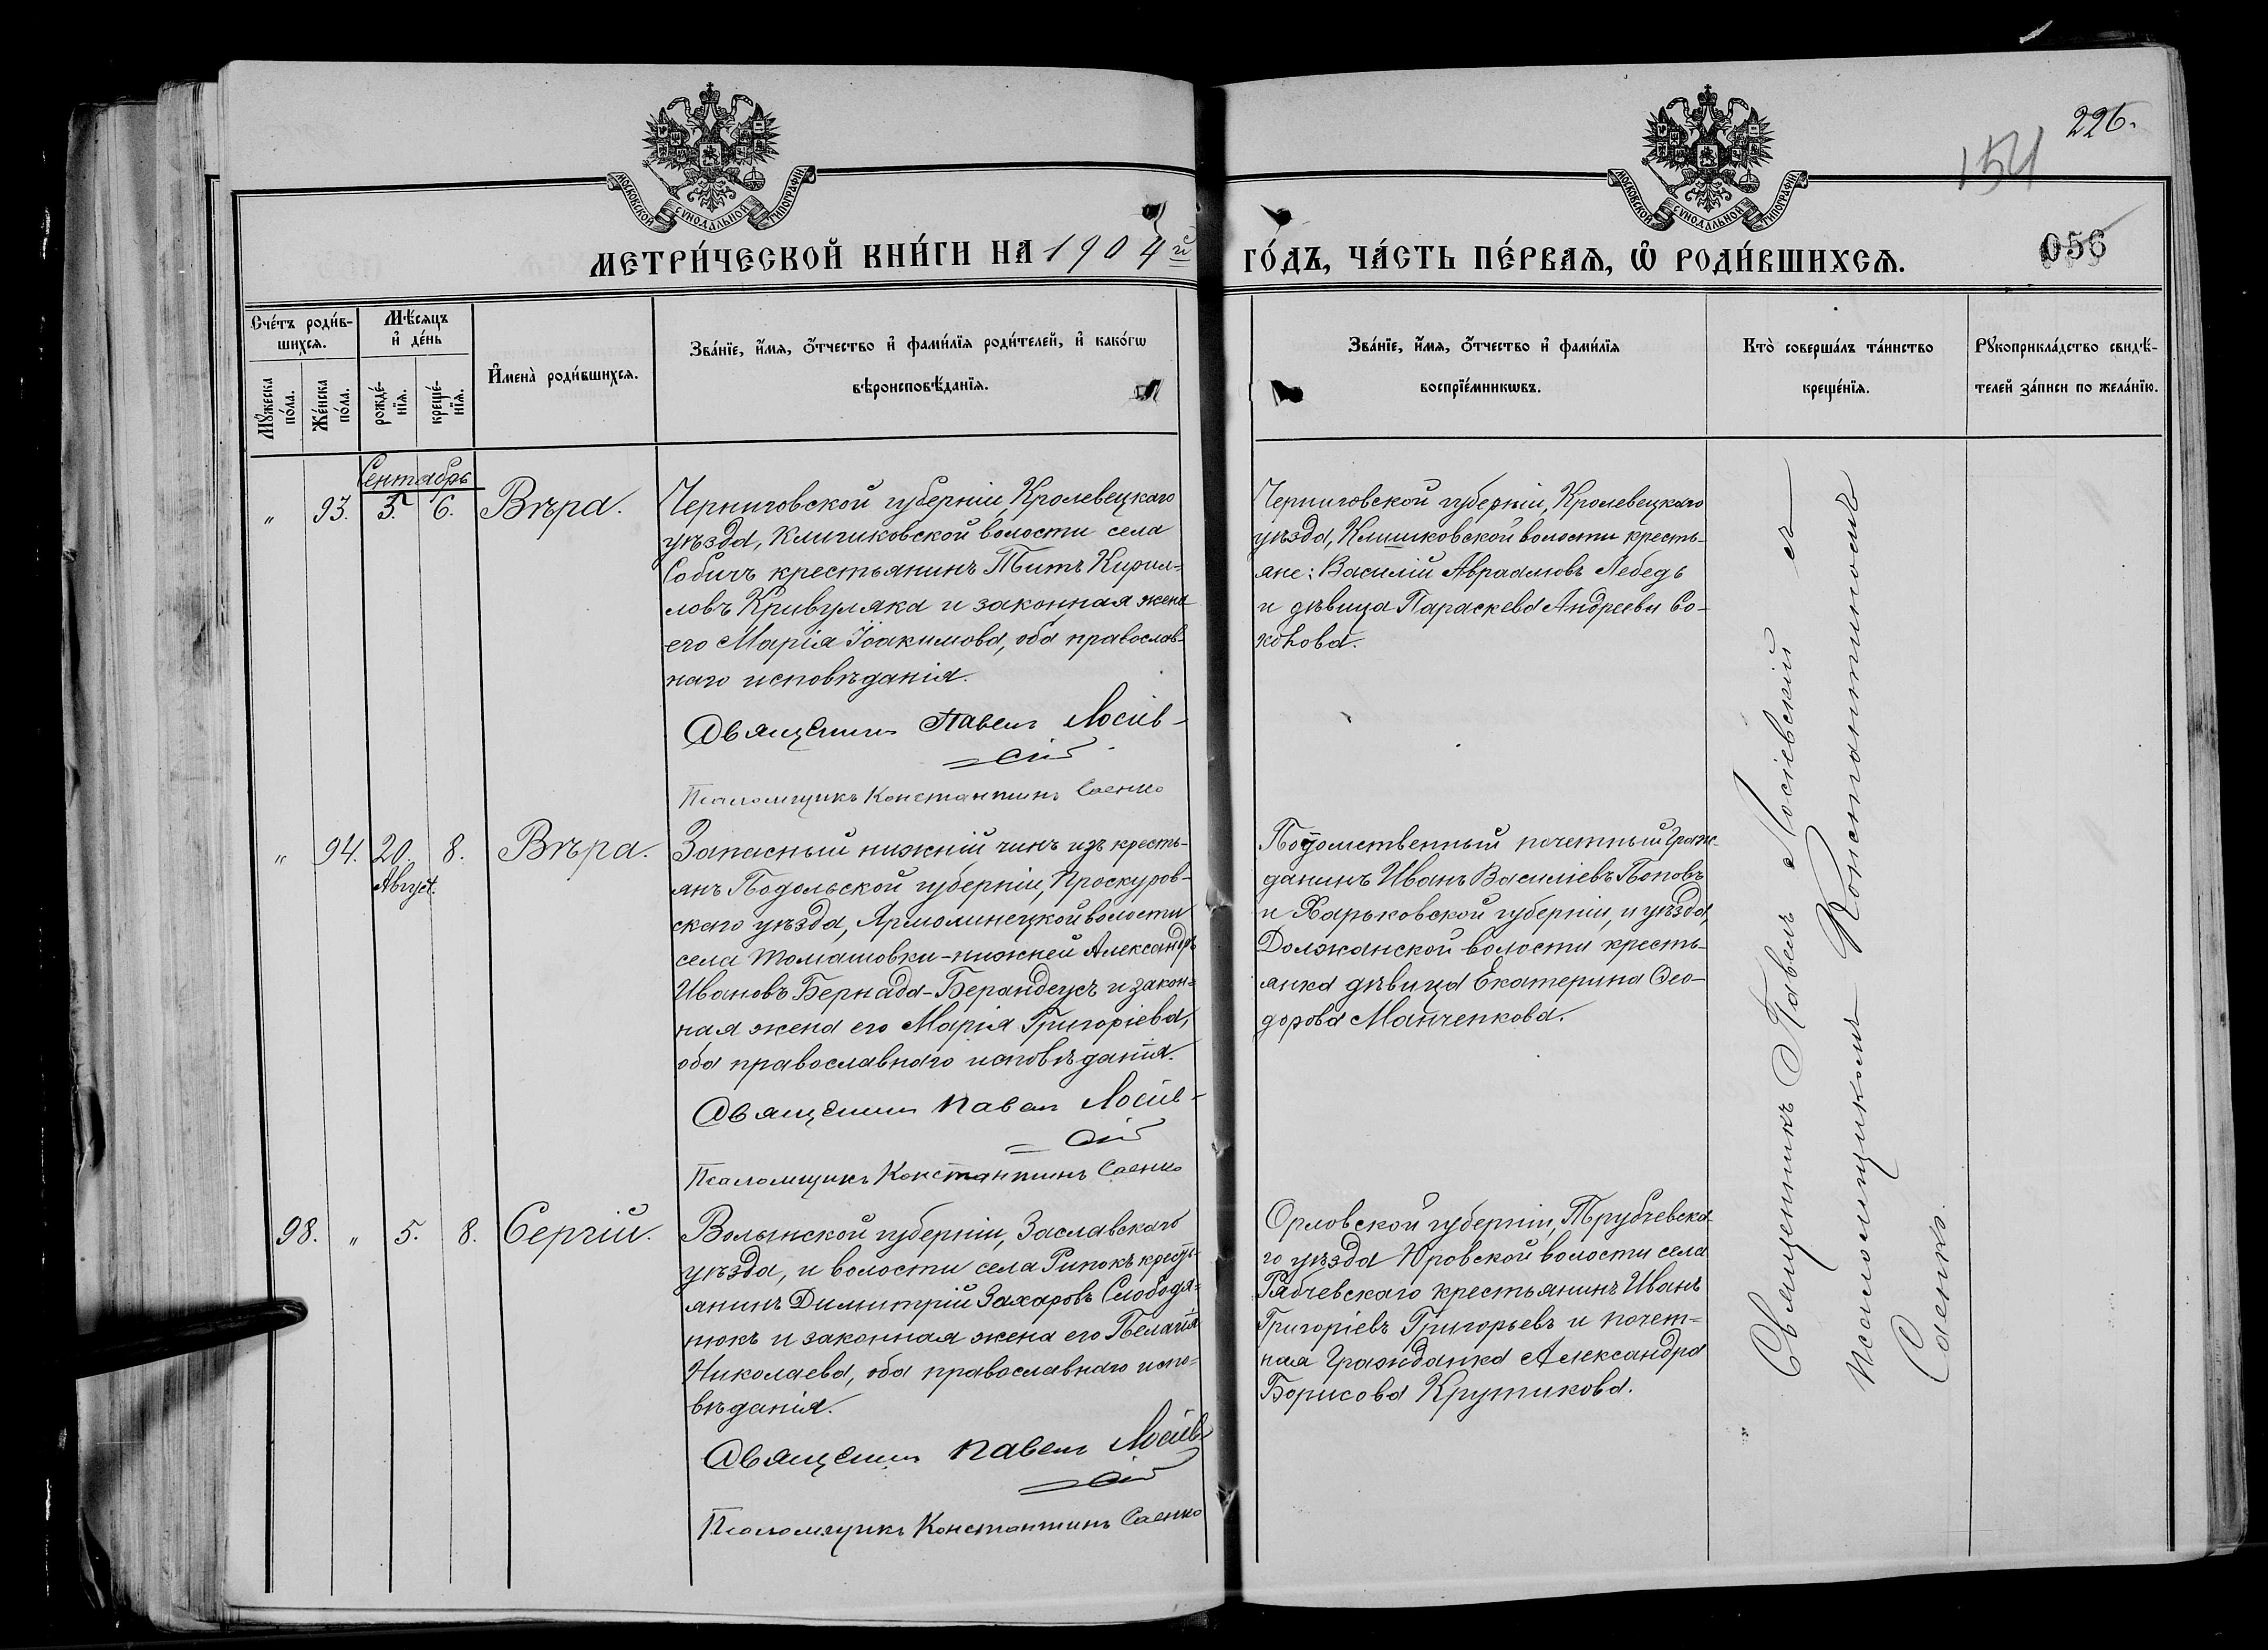 226.
154
МОСКОВСКОЙ СѴНОДАЛЬНОЙ ТИПОГРАФІИ
МОСКОВСКОЙ СѴНОДАЛЬНОЙ ТИПОГРАФІИ
МЕТРИ́ЧЕСКОЙ КНИ́ГИ НА 1904й
ГО́ДЪ, ЧА́СТЬ ПЕ́РВАЯ, Ѡ РОДИ́ВШИХСЯ.
056
Сче́тъ роди́в-
шихся.
Мѣ́сяцъ
и҆ де́нь
Мꙋ́жеска
по́ла.
Же́нска
по́ла.
рожде́-
нїя.
креще́-
нїя.
И҆мена̀ роди́вшихся.
Зва́нїе, и҆́мя, о҆́тчество и҆ фами́лїя роди́телей, и҆ како́гѡ
вѣроисповѣ́данїя.
Зва́нїе, и҆́мя, о҆́тчество и҆ фами́лїя
воспрїе́мникѡвъ.
Кто̀ соверша́лъ та́инство
креще́нїя.
Рꙋкоприкла́дство свидѣ́-
телей за́писи по жела́нїю.
Сентябрь
„ 93. 5. 6. Вѣра.
Черниговской губерніи, Кролевецкаго
уѣзда, Клишковской волости села
Собичъ крестьянинъ Титъ Кирил-
ловъ Кривуляка и законная жена
его Марія Іоакимова, оба православ-
наго исповѣданія.
Священникъ Павелъ Лосіев-
скій
Псаломщикъ Константинъ Саенко
Черниговской губерніи, Кролевецкаго
уѣзда, Клишковской волости кресть-
яне: Василій Авраамовъ Лебедь
и дѣвица Параскева Андреева Со-
„ 94. 20. 8. Вѣра.
Август.
Запасный нижній чинъ изъ кресть-
янъ Подольской губерніи, Проскуров-
скаго уѣзда, Ярмолинецкой волости
села Томашовки-нижней Александръ
Ивановъ Бернада-Берандецъ и закон-
ная жена его Марія Григоріева,
оба православнаго исповѣданія.
Священникъ Павелъ Лосіев-
скій
Псаломщикъ Константинъ Саенко
Потомственный почетный граж-
данинъ Иванъ Василіевъ Поповъ
и Харьковской губерніи, и уѣзда,
Должанской волости кресть-
янка дѣвица Екатерина Ѳео-
дорова Манченкова.
98. „ 5. 8. Сергій.
Волынской губерніи, Заславскаго
уѣзда, и волости села Рипокъ кресть-
янинъ Димитрій Захаровъ Слободя-
нюкъ и законная жена его Пелагія
Николаева, оба православнаго испо-
вѣданія.
Священникъ Павелъ Лосіев-
скій
Псаломщикъ Константинъ Саенко
Орловской губерніи, Трубчевска-
го уѣзда Юровской волости села
Рябчевскаго крестьянинъ Иванъ
Григоріевъ Григорьевъ и почет-
ная гражданка Александра
Борисова Крутикова.
Священникъ Павелъ Лосіевскій съ
псаломщикомъ Константиномъ
Саенко.